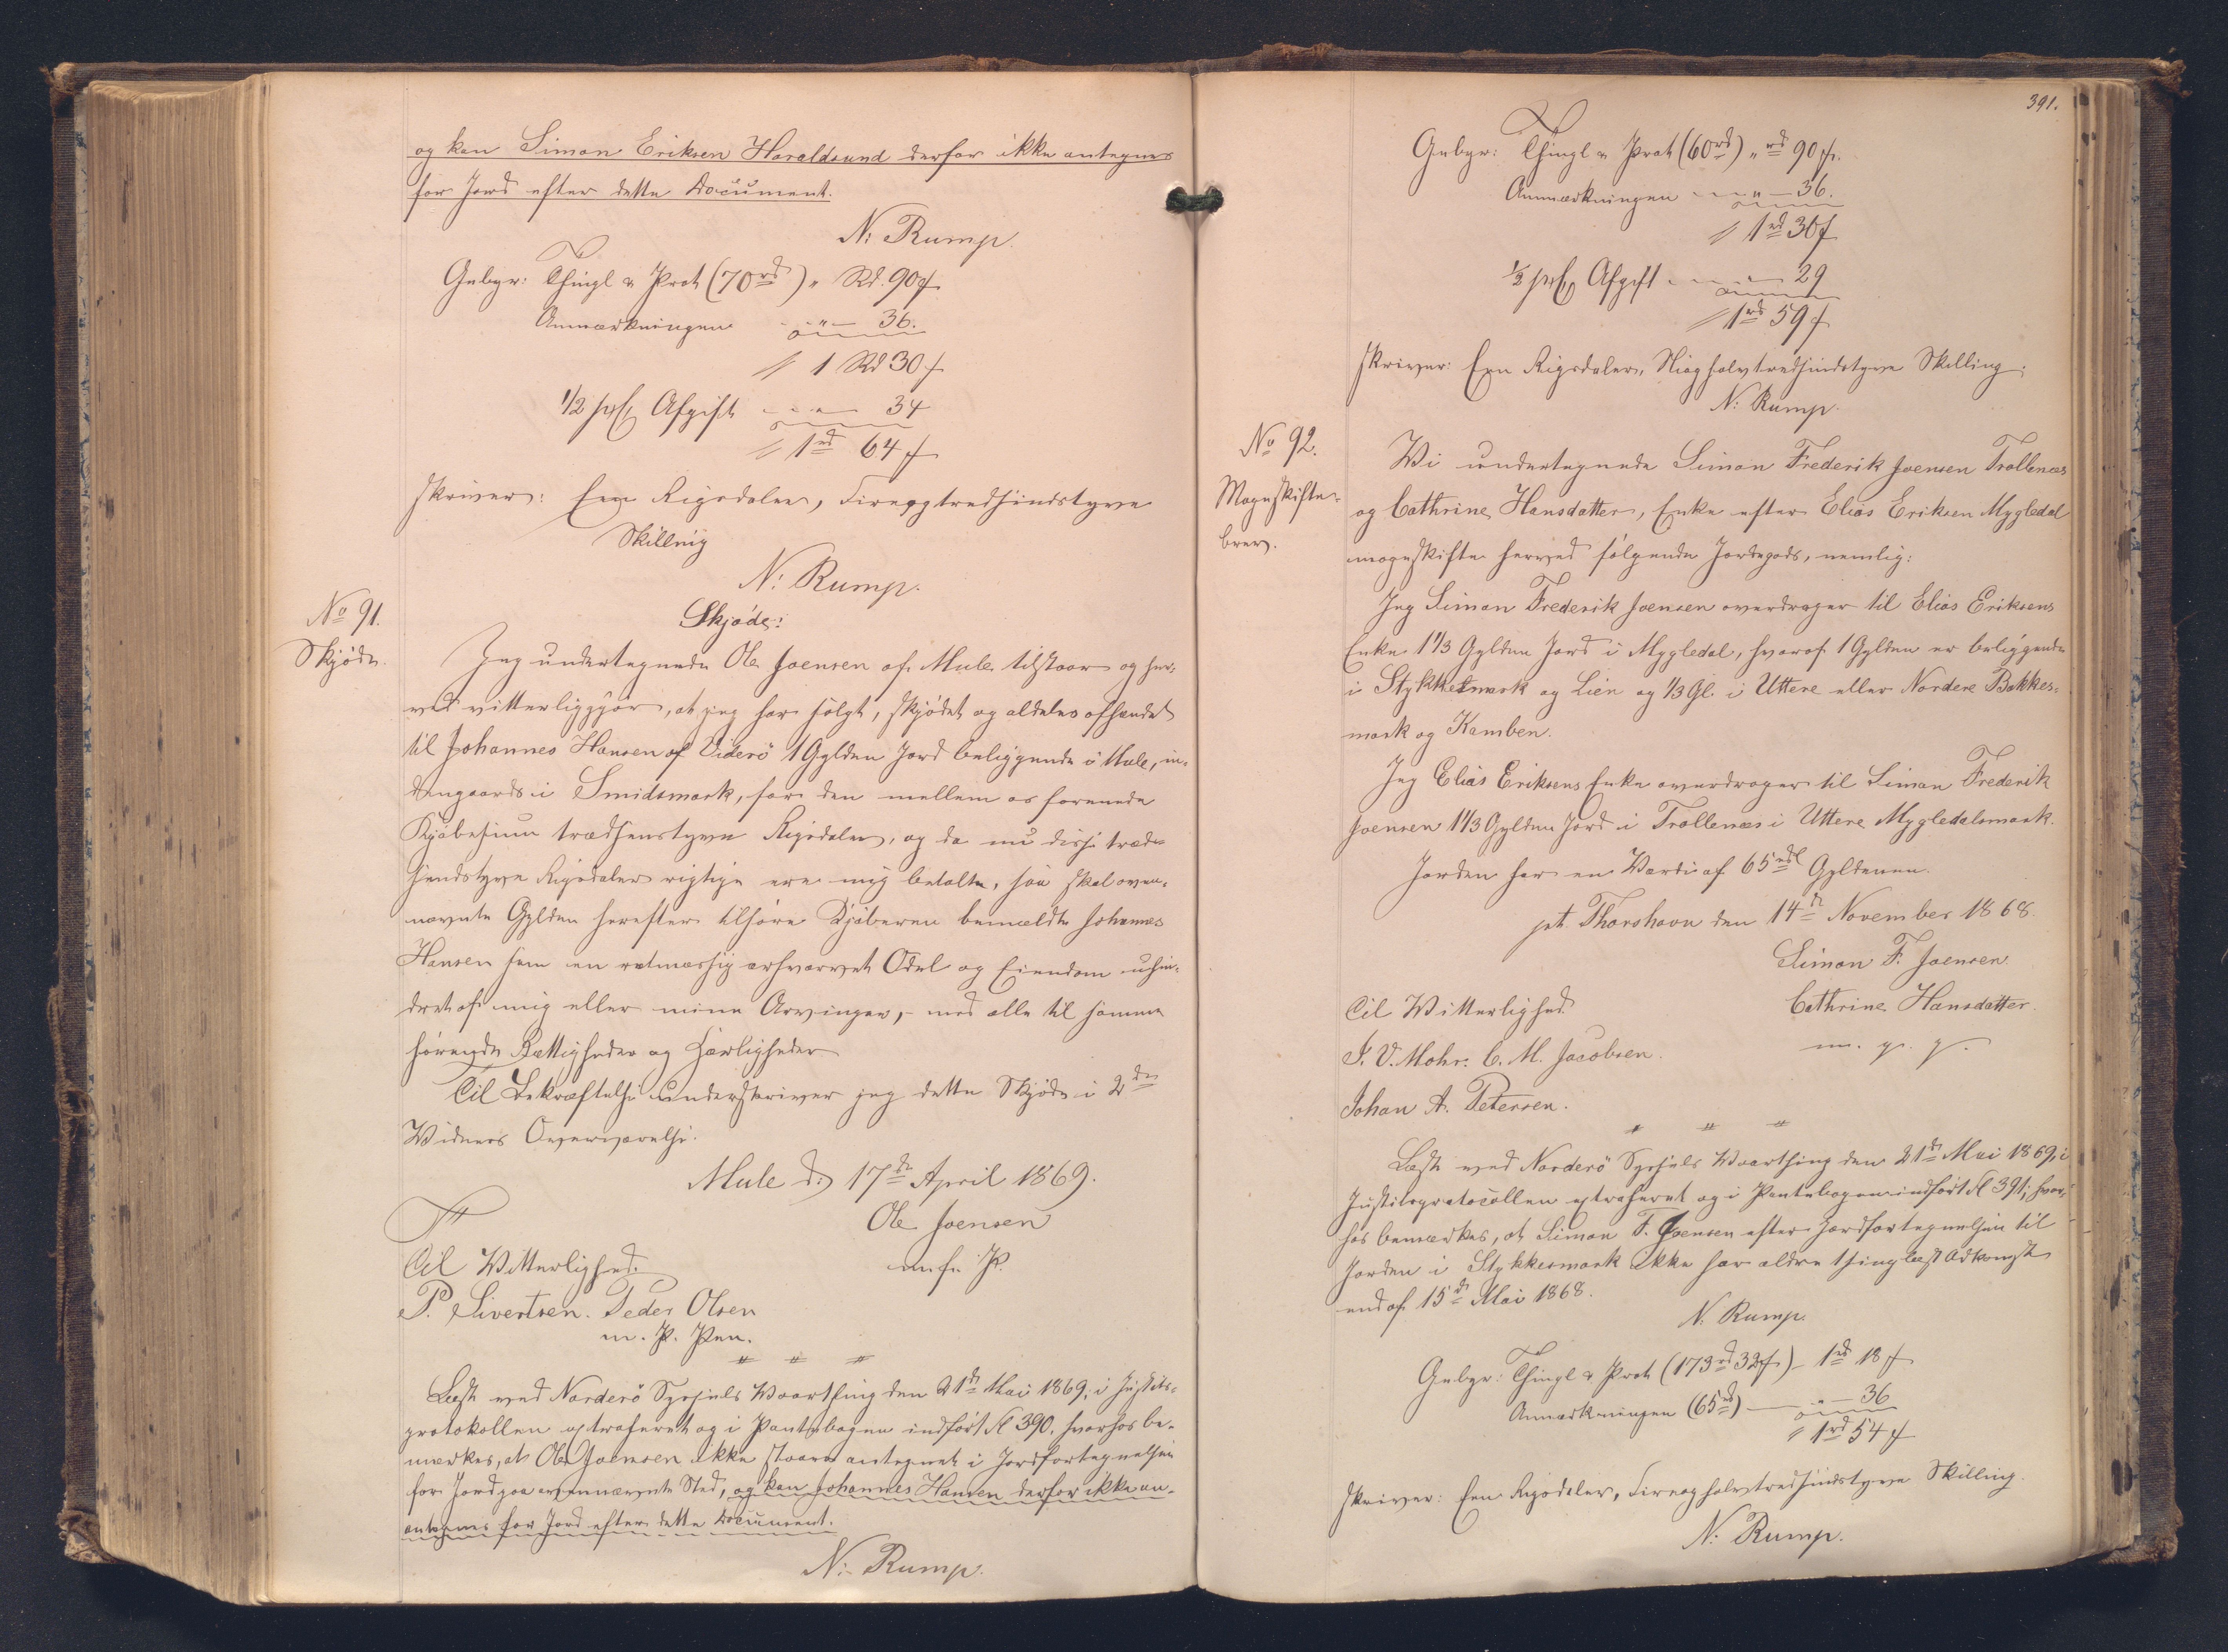 og kan Simon Eriksen Haraldsund derfor ikke antegnes
for Jord efter dette Document.
N: Rump.
Gebyr: Thingl & Prot (70rd) " Rd. 90 f
Anmærkningen " 36.
1 Rd 30 f
1/2 prC Afgift 34
1rd 64 f
skriver: Een Rigsdaler, Fireogtredsindstyve
Skilling
N: Rump.
No 91.
Skjøde.
Skjøde:
Jeg undertegnede Ole Joensen af Mule tilstaar og her-
ved vitterliggjør, at jeg har solgt, skjødet og aldeles afhændet
til Johannes Hansen af Viderö 1 Gylden Jord beliggende i Mule, in-
dengaards i Smidsmark, for den mellem os forenede
Kjøbesum tredsenstyve Rigsdaler, og da nu disse tred-
sendstyve Rigsdaler rigtige ere mig betalte, saa skal oven-
nævnte Gylden herefter tilhøre Kjøberen bemeldte Johannes
Hansen som en retmæssig erhvervet Odel og Eiendom uhin-
dret af mig eller mine Arvinger, med alle til samme
hørende Rettigheder og Herligheder
Til Bekræftelse underskriver jeg dette Skjøde i 2de
Vidners Overværelse.
Mule d: 17de April 1869.
Ole Joensen
m. f. P.
Til Vitterlighed.
P. Sivertsen. Peder Olsen
m. P. Pen.
Læst ved Norderö Syssels Vaarthing den 21de Mai 1869, i Justits-
protokollen extraheret og i Pantebogen indført fl 390. hvorhos be-
mærkes, at Ole Joensen ikke staar antegnet i Jordfortegnelsen
for Jord paa ovennævnte Sted, og kan Johannes Hansen derfor ikke an-
antegnes for Jord efter dette Document.
N: Rump.
391.
Gebyr: Thingl & Prot (60rd) " rd 90 f.
Anmærkningen " 36.
1rd 30 f
1/2 prC Afgift 29
1rd 59 f
skriver: Een Rigsdaler, Nioghalvtredsindstyve Skilling.
N: Rump.
No 92.
Mageskifte-
brev.
Vi undertegnede Simon Frederik Joensen Trollenæs
og Cathrine Hansdatter, Enke efter Elias Eriksen Mygledal
mageskifte herved følgende Jordegods, nemlig:
Jeg Simon Frederik Joensen overdrager til Elias Eriksens
Enke 1 1/3 Gylden Jord i Mygledal, hvoraf 1 Gylden er beliggende
i Stykkesmark og Lien og 1/3 Gl. i Uttere eller Nordere Bakkes-
mark og Kamben.
Jeg Elias Eriksens Enke overdrager til Simon Frederik
Joensen 1 1/3 Gylden Jord i Trollenæs i Uttere Mygledalsmark.
Jorden har en Værdi af 65rdl Gyldenen.
pt. Thorshavn den 14de November 1868.
Simon F. Joensen.
Til Vitterlighed
Cathrine Hansdatter.
J. V. Mohr. C. M. Jacobsen.
m. p. P.
Johan A. Petersen.
Læst ved Norderö Syssels Vaarthing den 21de Mai 1869, i
Justitsprotocollen extraheret og i Pantebogen indført fl 391; hvor-
hos bemærkes, at Simon F. Joensen efter Jordfortegnelsen til
Jorden i Stykkesmark ikke har ældre thinglæst Adkomst
end af 15de Mai 1868.
N. Rump.
Gebyr: Thingl & Prot (173rd 32 f) - 1rd 18 f
Anmærkningen (65rd) " 36
1rd 54 f
skriver: Een Rigsdaler, Fireoghalvtredsindstyve Skilling.
N: Rump.